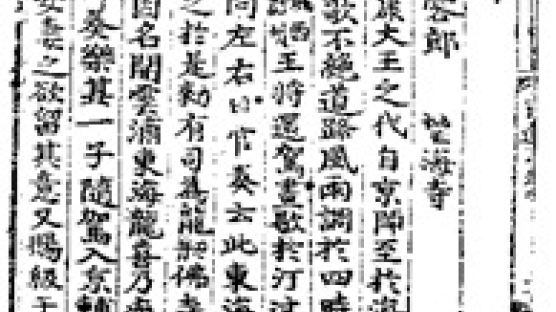 容郎 望海寺
康大王之代自京師至於海
歌不絕道路風雨調於四時
王將還駕晝歇於汀
問左右日官奏云此東海
之於是勅有司為龍刱佛寺
因名開雲浦東海龍喜乃
奏樂其一子隨駕入京輔
女妻之欲留其意又賜級干